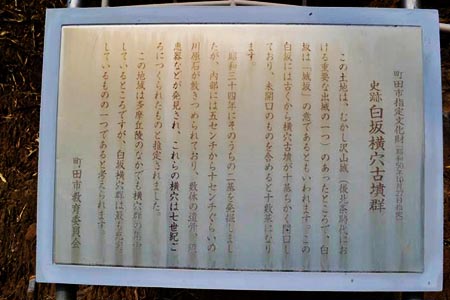 町田市指定文化財
史跡 白坂横穴古墳群
この土地は、むかし沢山城(後北条時代にお
ける重要な出城の一つ)のあったところで、白
坂は「城坂」の意であるともいわれます。この
白坂には古くから横穴古墳が十基ちかく開口し
ており、未開口のものを含めると十数基になり
ます。
昭和三十四年にそのうちの二基を発掘しまし
たが、内部には五センチから十センチぐらいの
川原石が敷きつめられており、数体の遺骨、須
恵器などが発見され、これらの横穴は七世紀ご
ろにつくられたものと推定されました。
この地域は多摩丘陵のなかでも横穴群の
しているところですが、白坂横穴群は最も
しているものの一つであると考えられます。
町田市教育委員会